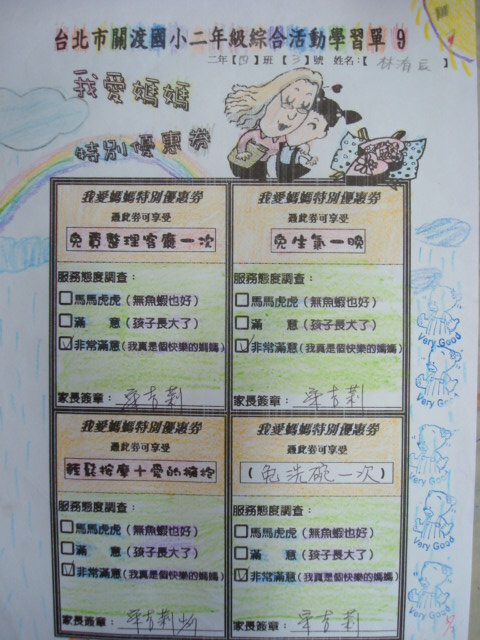 台北市關渡國小二年級綜合活動學習單 9
二年【四】班【3】號 姓名：【林　辰】
我愛媽媽
特別優惠券
我愛媽媽特別優惠券
憑此券可享受
免費整理客廳一次
服務態度調查：
馬馬虎虎（無魚蝦也好）
滿　意（孩子長大了）
非常滿意（我真是個快樂的媽媽）
家長簽章：
我愛媽媽特別優惠券
憑此券可享受
免生氣一晚
服務態度調查：
馬馬虎虎（無魚蝦也好）
滿　意（孩子長大了）
非常滿意（我真是個快樂的媽媽）
家長簽章：
我愛媽媽特別優惠券
憑此券可享受
輕鬆按摩＋愛的擁抱
服務態度調查：
馬馬虎虎（無魚蝦也好）
滿　意（孩子長大了）
非常滿意（我真是個快樂的媽媽）
家長簽章：
我愛媽媽特別優惠券
憑此券可享受
（免洗碗一次）
服務態度調查：
馬馬虎虎（無魚蝦也好）
滿　意（孩子長大了）
非常滿意（我真是個快樂的媽媽）
家長簽章：
Very Good
Very Good
Very Good
Very Good
Very Good